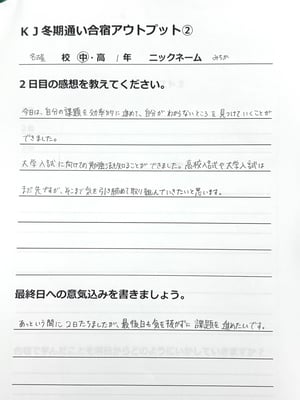 KJ冬期通い合宿アウトプット②
名護 校 中・高 1年 ニックネーム みちゃ
2日目の感想を教えてください。
今日は、自分の課題を効率的に進めて、自分がわからないところを見つけていくことが
できました。
大学入試に向けての勉強法も知ることができました。高校入試や大学入試は
まだ先ですが、そこまで気を引き締めて取り組んでいきたいと思います。
最終日への意気込みを書きましょう。
あっという間に2日たちましたが、最後日も気を抜かずに課題を進めたいです。